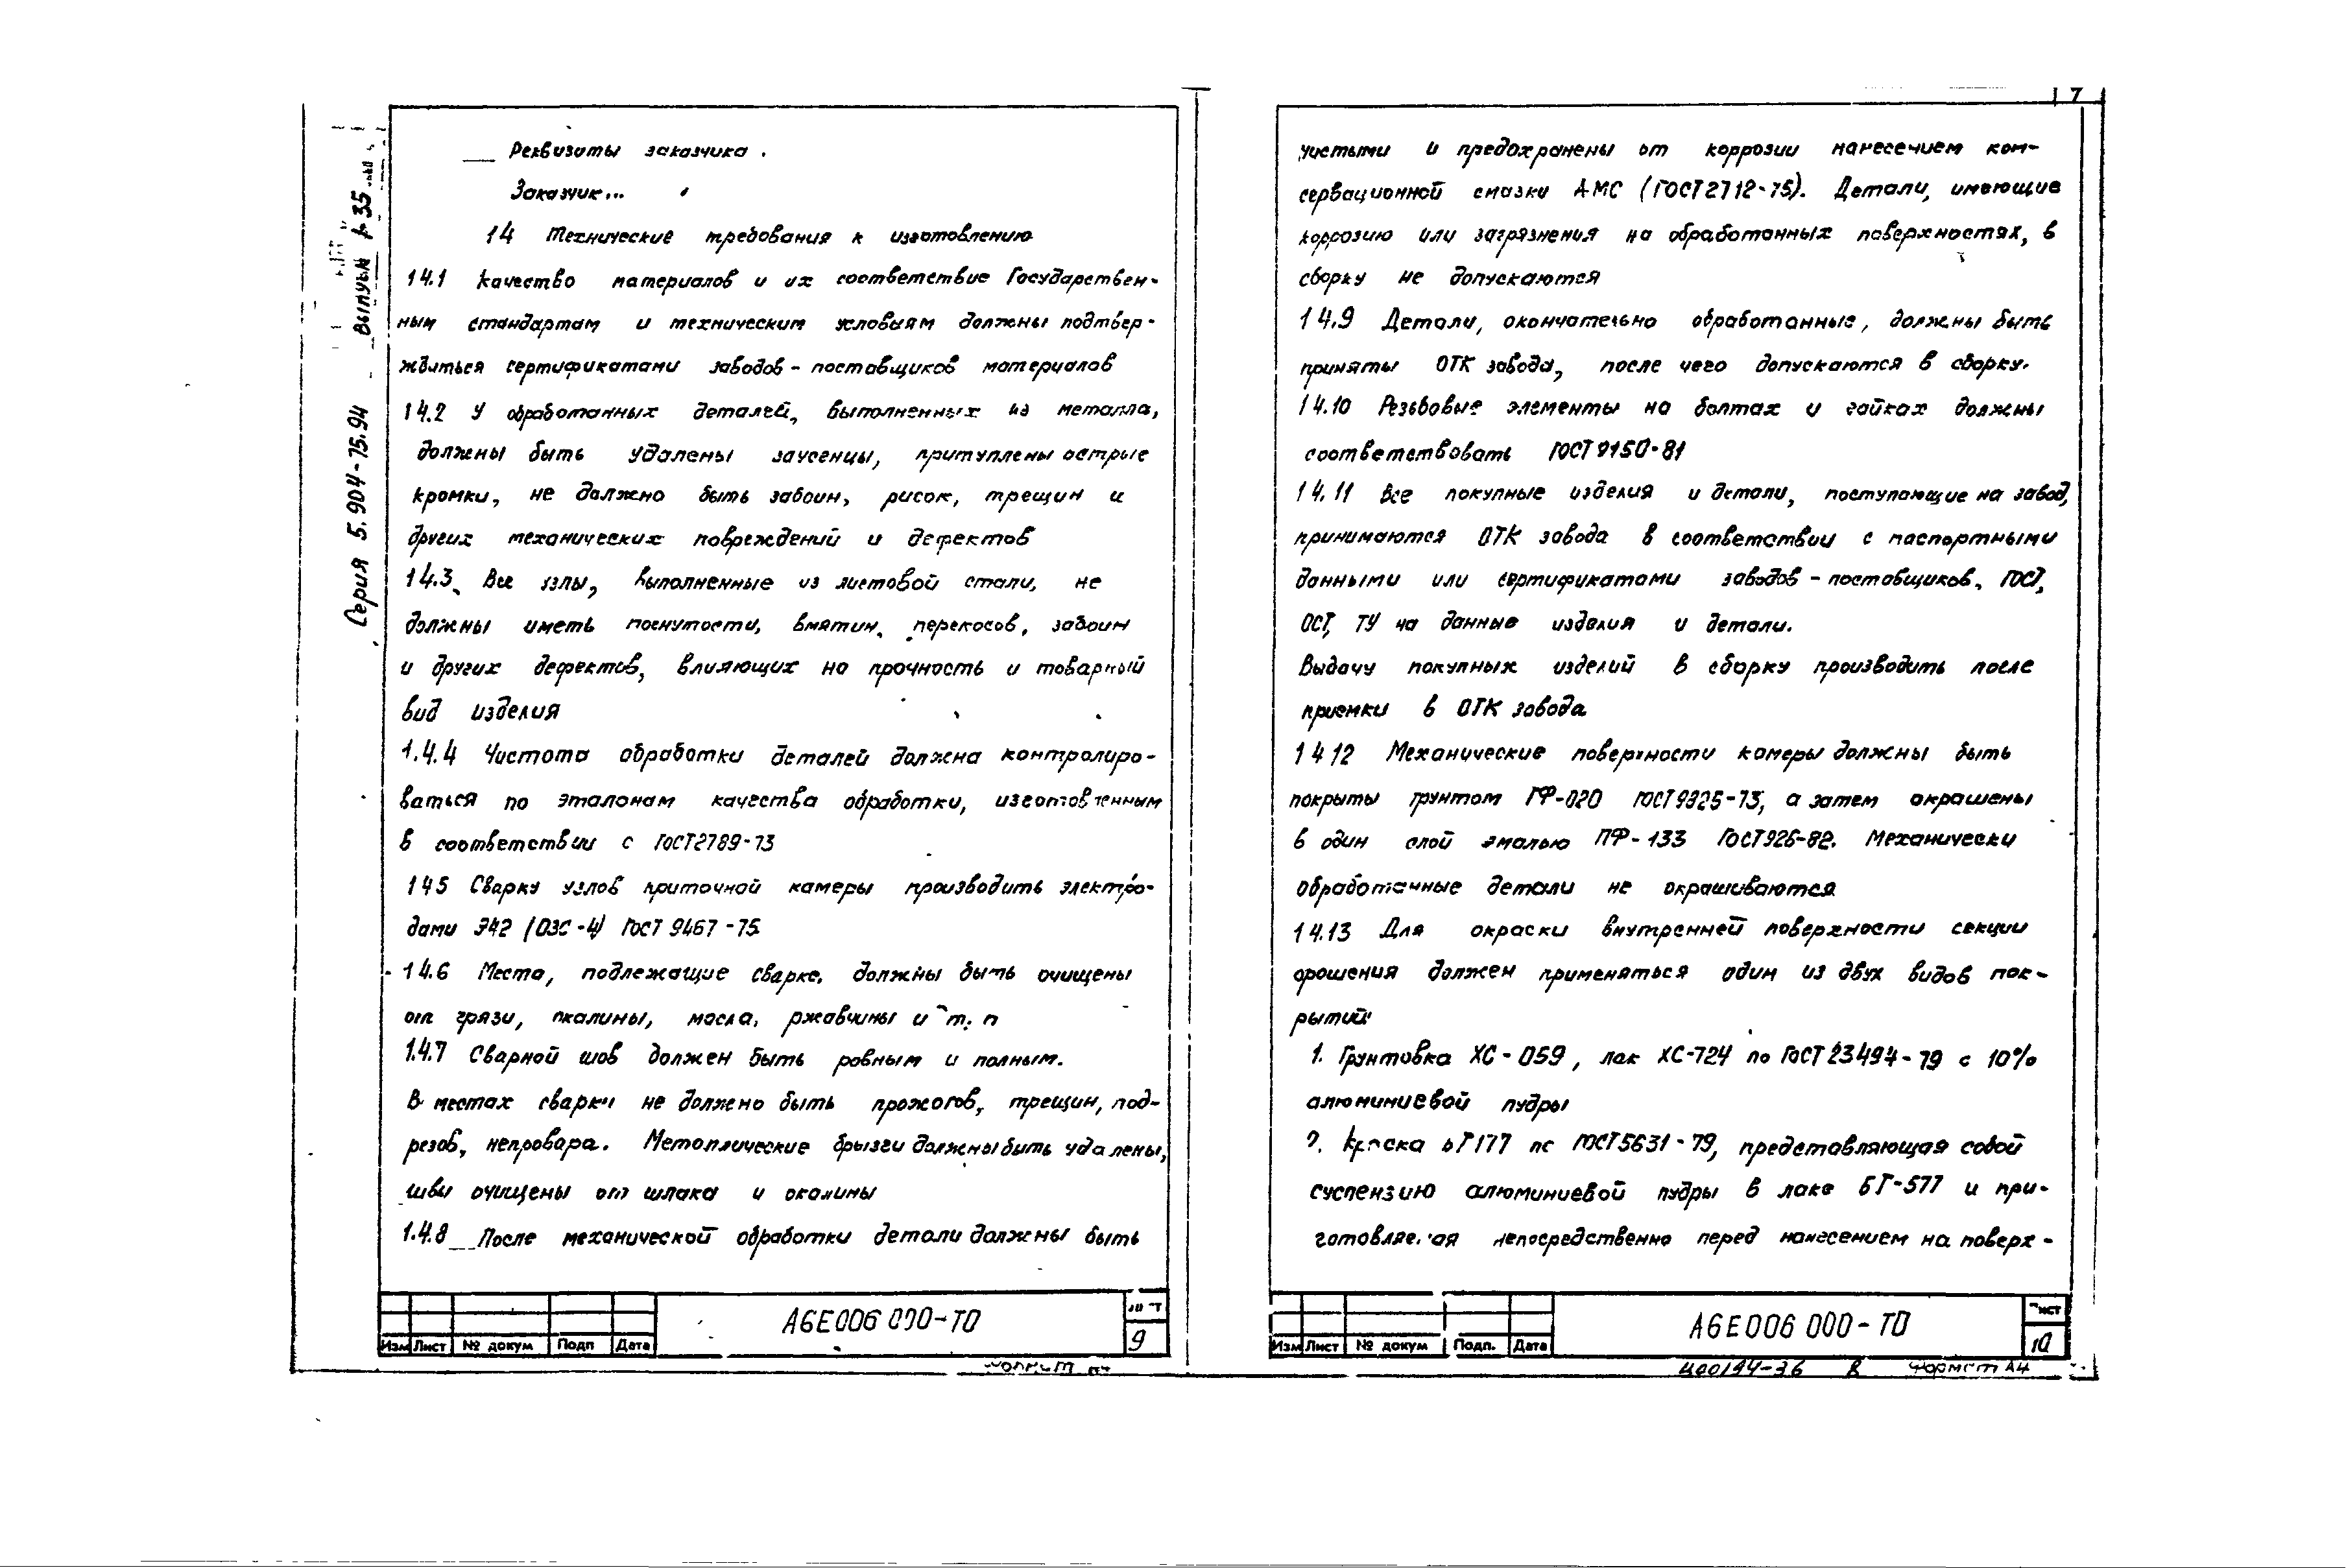 Серия 5.904-75.94 Выпуск 35
Реквизиты заказчика.
Заказчик...
14 Технические требования к изготовлению
14.1 Качество материалов и их соответствие Государствен-
ным стандартам и техническим условиям должны подтвер-
ждаться сертификатами заводов-поставщиков материалов
14.2 У обработанных деталей, выполненных из металла,
должны быть удалены заусенцы, притуплены острые
кромки, не должно быть забоин, рисок, трещин и
других механических повреждений и дефектов
14.3. Все узлы, выполненные из листовой стали, не
должны иметь погнутости, вмятин, перекосов, забоин
и других дефектов, влияющих на прочность и товарный
вид изделия
1.4.4 Чистота обработки деталей должна контролиро-
ваться по эталонам качества обработки, изготовленным
в соответствии с ГОСТ2789-73
145 Сварку узлов приточной камеры производить электро-
дами Э42 (ОЗС-4) ГОСТ 9467-75
14.6 Места, подлежащие сварке, должны быть очищены
от грязи, окалины, масла, ржавчины и т. п
1.4.7 Сварной шов должен быть ровным и полным.
В местах сварки не должно быть прожогов, трещин, под-
резов, непровара. Металлические брызги должны быть удалены,
швы очищены от шлака и окалины
1.4.8 После механической обработки детали должны быть
А6Е006 000-ТО
9
Изм Лист № докум Подп Дата
7
чистыми и предохранены от коррозии нанесением кон-
сервационной смазки АМС (ГОСТ2712-75). Детали, имеющие
коррозию или загрязнения на обработанных поверхностях, в
сборку не допускаются
14.9 Детали, окончательно обработанные, должны быть
приняты ОТК завода, после чего допускаются в сборку.
14.10 Резьбовые элементы на болтах и гайках должны
соответствовать ГОСТ9150-81
14.11 Все покупные изделия и детали, поступающие на завод,
принимаются ОТК завода в соответствии с паспортными
данными или сертификатами заводов-поставщиков, ГОСТ,
ОСТ, ТУ на данные изделия и детали.
Выдачу покупных изделий в сборку производить после
приемки в ОТК завода
1412 Механические поверхности камеры должны быть
покрыты грунтом ГФ-020 ГОСТ9825-73, а затем окрашены
в один слой эмалью ПФ-133 ГОСТ926-82. Механически
обработанные детали не окрашиваются
14.13 Для окраски внутренней поверхности секции
орошения должен применяться один из двух видов пок-
рытий:
1. Грунтовка ХС-059, лак ХС-724 по ГОСТ23494-79 с 10%
алюминиевой пудры
2. Краска БТ177 по ГОСТ5631-79, представляющая собой
суспензию алюминиевой пудры в лаке БТ-577 и при-
готовляемая непосредственно перед нанесением на поверх-
А6Е006 000-ТО
Лист
10
Изм Лист № докум Подп. Дата
Ц00194-36 8 Формат А4